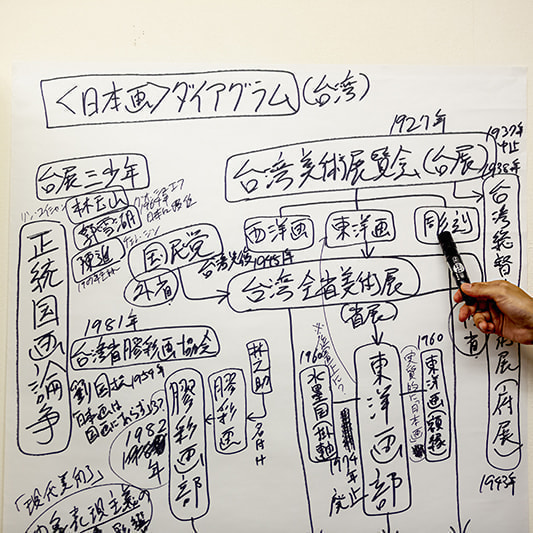 〈日本画〉ダイアグラム(台湾)
1927年
台湾美術展覧会(台展)
1937年
中止
1938年
台展三少年
林玉山
郭雪湖
陳進
西洋画
東洋画
彫刻
国民党
外省
台湾光復1945年
台湾全省美術展
省展
台湾総督府展(府展)
1943年
正統国画論争
1981年
台湾省膠彩画協会
劉国松1954年
日本画は
国画にあらず!?
1982
年
膠彩画部
膠彩画
林之助
名付け
1960
水墨国画
掛軸
東洋画部
1974年
廃止
実質的に日本画
1960
東洋画
額装
「現代美術」
抽象表現主義の